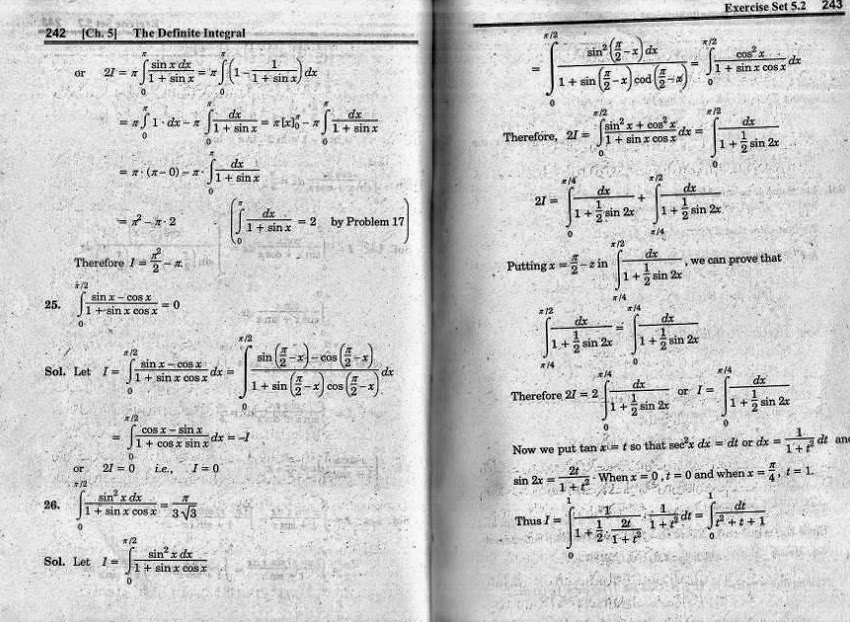 242 [Ch. 5] The Definite Integral
or 2I = π ∫₀^π sin x dx / (1 + sin x) = π ∫₀^π (1 − 1 / (1 + sin x)) dx
= π ∫₀^π 1 · dx − π ∫₀^π dx / (1 + sin x) = π [x]₀^π − π ∫₀^π dx / (1 + sin x)
= π · (π − 0) − π · ∫₀^π dx / (1 + sin x)
= π² − π · 2 ( ∫₀^π dx / (1 + sin x) = 2 by Problem 17 )
Therefore I = π²/2 − π.
25. ∫₀^{π/2} (sin x − cos x) / (1 + sin x cos x) = 0
Sol. Let I = ∫₀^{π/2} (sin x − cos x) / (1 + sin x cos x) dx = ∫₀^{π/2} (sin (π/2 − x) − cos (π/2 − x)) / (1 + sin (π/2 − x) cos (π/2 − x)) dx
= ∫₀^{π/2} (cos x − sin x) / (1 + cos x sin x) dx = −I
or 2I = 0 i.e., I = 0
26. ∫₀^{π/2} sin² x dx / (1 + sin x cos x) = π / 3√3
Sol. Let I = ∫₀^{π/2} sin² x dx / (1 + sin x cos x)
Exercise Set 5.2 243
= ∫₀^{π/2} sin² (π/2 − x) dx / (1 + sin (π/2 − x) cod (π/2 − x)) = ∫₀^{π/2} cos² x / (1 + sin x cos x) dx
Therefore, 2I = ∫₀^{π/2} (sin² x + cos² x) / (1 + sin x cos x) dx = ∫₀^{π/2} dx / (1 + ½ sin 2x)
2I = ∫₀^{π/4} dx / (1 + ½ sin 2x) + ∫_{π/4}^{π/2} dx / (1 + ½ sin 2x)
Putting x = π/2 − z in ∫_{π/4}^{π/2} dx / (1 + ½ sin 2x), we can prove that
∫_{π/4}^{π/2} dx / (1 + ½ sin 2x) = ∫₀^{π/4} dx / (1 + ½ sin 2x)
Therefore 2I = 2 ∫₀^{π/4} dx / (1 + ½ sin 2x) or I = ∫₀^{π/4} dx / (1 + ½ sin 2x)
Now we put tan x = t so that sec² x dx = dt or dx = 1 / (1 + t²) dt and
sin 2x = 2t / (1 + t²). When x = 0, t = 0 and when x = π/4, t = 1.
Thus I = ∫₀¹ 1 / (1 + ½ · 2t / (1 + t²)) · 1 / (1 + t²) dt = ∫₀¹ dt / (t² + t + 1)